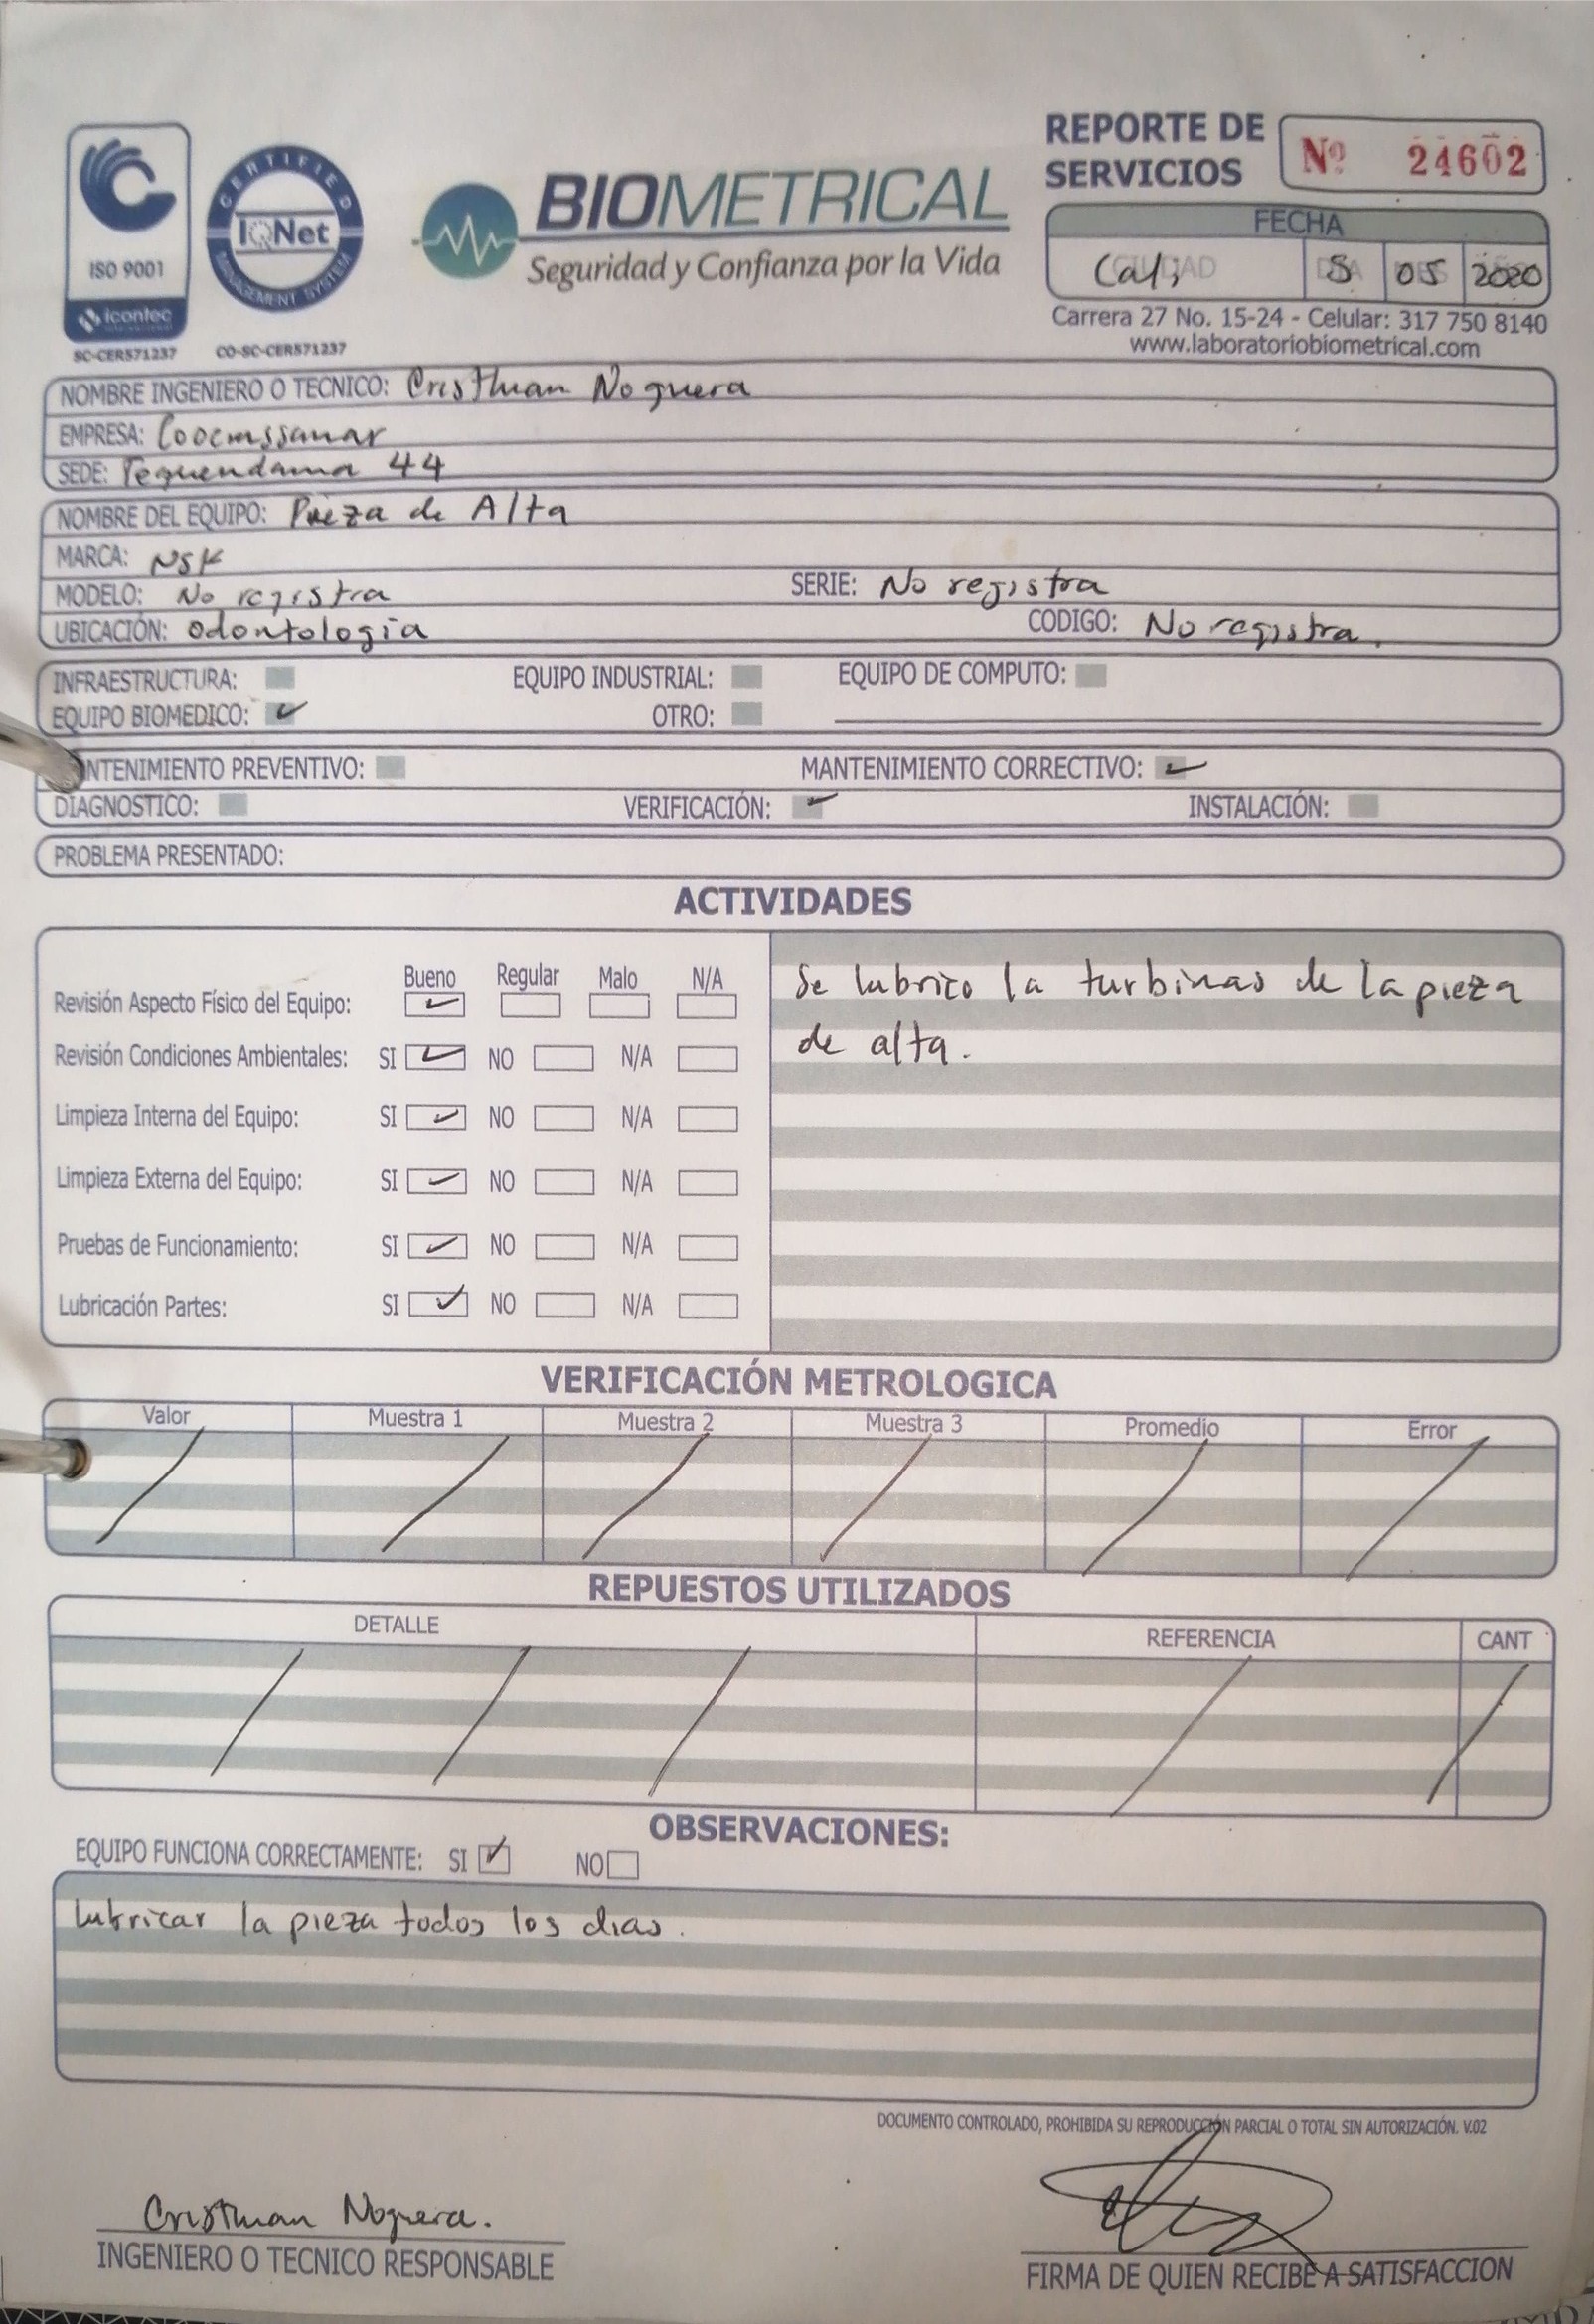 REPORTE DE
SERVICIOS
Nº 24602
ISO 9001
icontec
internacional
SC-CER571237
CERTIFIED
IQNet
MANAGEMENT SYSTEM
CO-SC-CER571237
BIOMETRICAL
Seguridad y Confianza por la Vida
FECHA
CIUDAD Cali 5 05 2020
Carrera 27 No. 15-24 - Celular: 317 750 8140
www.laboratoriobiometrical.com
NOMBRE INGENIERO O TECNICO: Cristhian Noguera
EMPRESA: Cooemssanar
SEDE: Tequendama 44
NOMBRE DEL EQUIPO: Pieza de Alta
MARCA: NSK
MODELO: No registra SERIE: No registra
UBICACIÓN: Odontologia CODIGO: No registra.
INFRAESTRUCTURA: EQUIPO INDUSTRIAL: EQUIPO DE COMPUTO:
EQUIPO BIOMEDICO: ✓ OTRO:
NTENIMIENTO PREVENTIVO: MANTENIMIENTO CORRECTIVO: ✓
DIAGNOSTICO: VERIFICACIÓN: ✓ INSTALACIÓN:
PROBLEMA PRESENTADO:
ACTIVIDADES
Bueno Regular Malo N/A
Revisión Aspecto Físico del Equipo: ✓
Revisión Condiciones Ambientales: SI ✓ NO N/A
Limpieza Interna del Equipo: SI ✓ NO N/A
Limpieza Externa del Equipo: SI ✓ NO N/A
Pruebas de Funcionamiento: SI ✓ NO N/A
Lubricación Partes: SI ✓ NO N/A
Se lubrico la turbinas de la pieza
de alta.
VERIFICACIÓN METROLOGICA
Valor Muestra 1 Muestra 2 Muestra 3 Promedio Error
REPUESTOS UTILIZADOS
DETALLE REFERENCIA CANT
OBSERVACIONES:
EQUIPO FUNCIONA CORRECTAMENTE: SI ✓ NO
lubricar la pieza todos los dias.
DOCUMENTO CONTROLADO, PROHIBIDA SU REPRODUCCIÓN PARCIAL O TOTAL SIN AUTORIZACIÓN. V.02
Cristhian Noguera.
INGENIERO O TECNICO RESPONSABLE
FIRMA DE QUIEN RECIBE A SATISFACCION